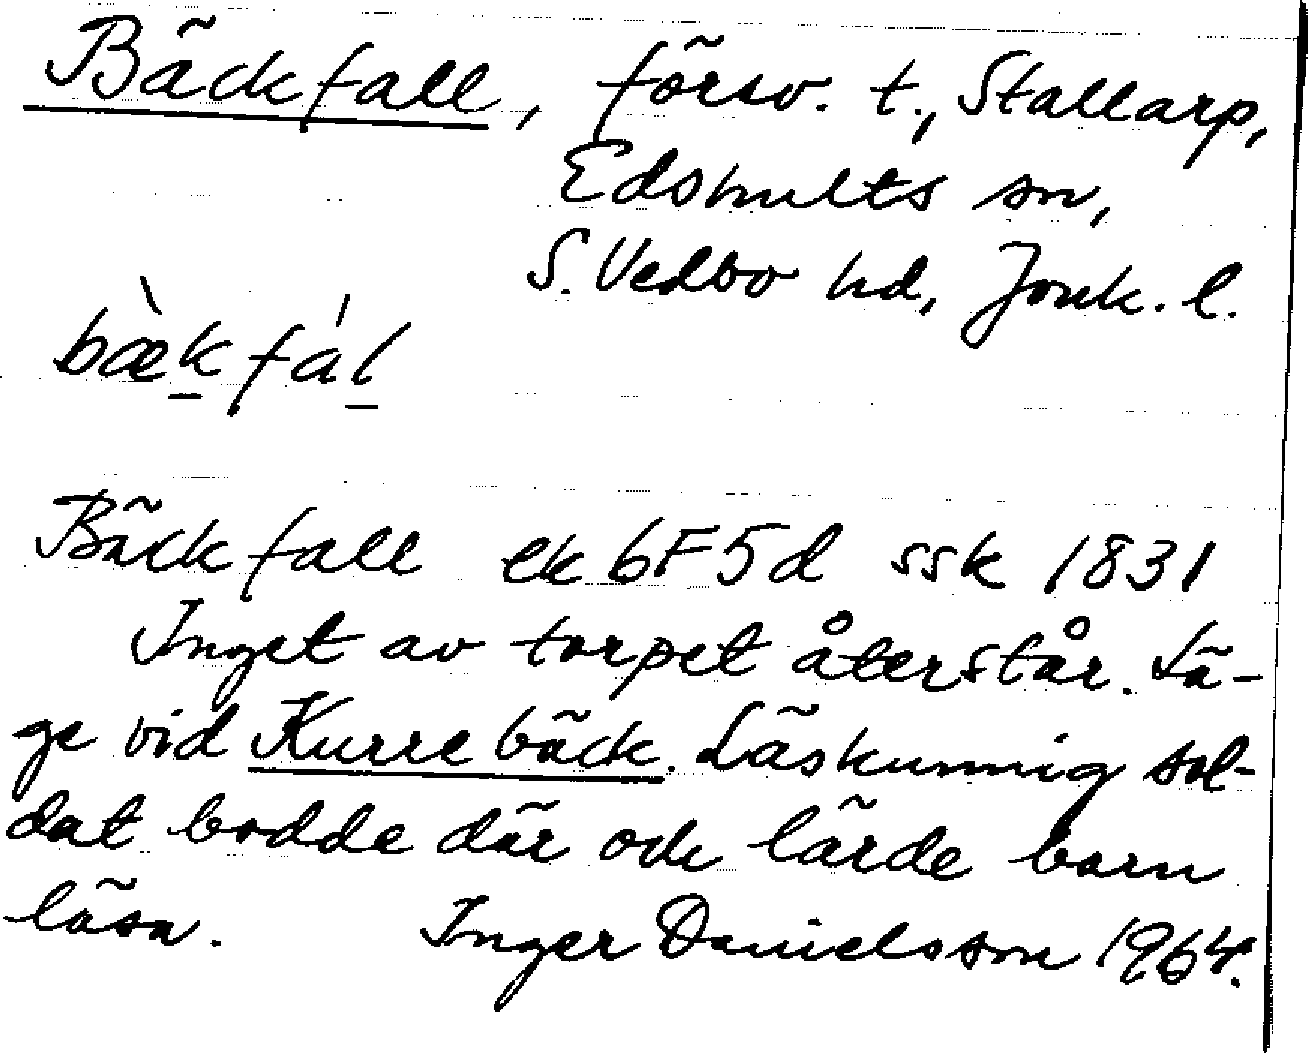 Bäckfall, försv. t., Stallarp,
Edshults sn,
S. Vedbo hd, Jönk. l.
bæ̀kfál
Bäckfall ek 6F5d ssk 1831
Inget av torpet återstår. Lä-
ge vid Kurrebäck. Läskunnig sol-
dat bodde där och lärde barn
läsa. Inger Danielsson 1964.